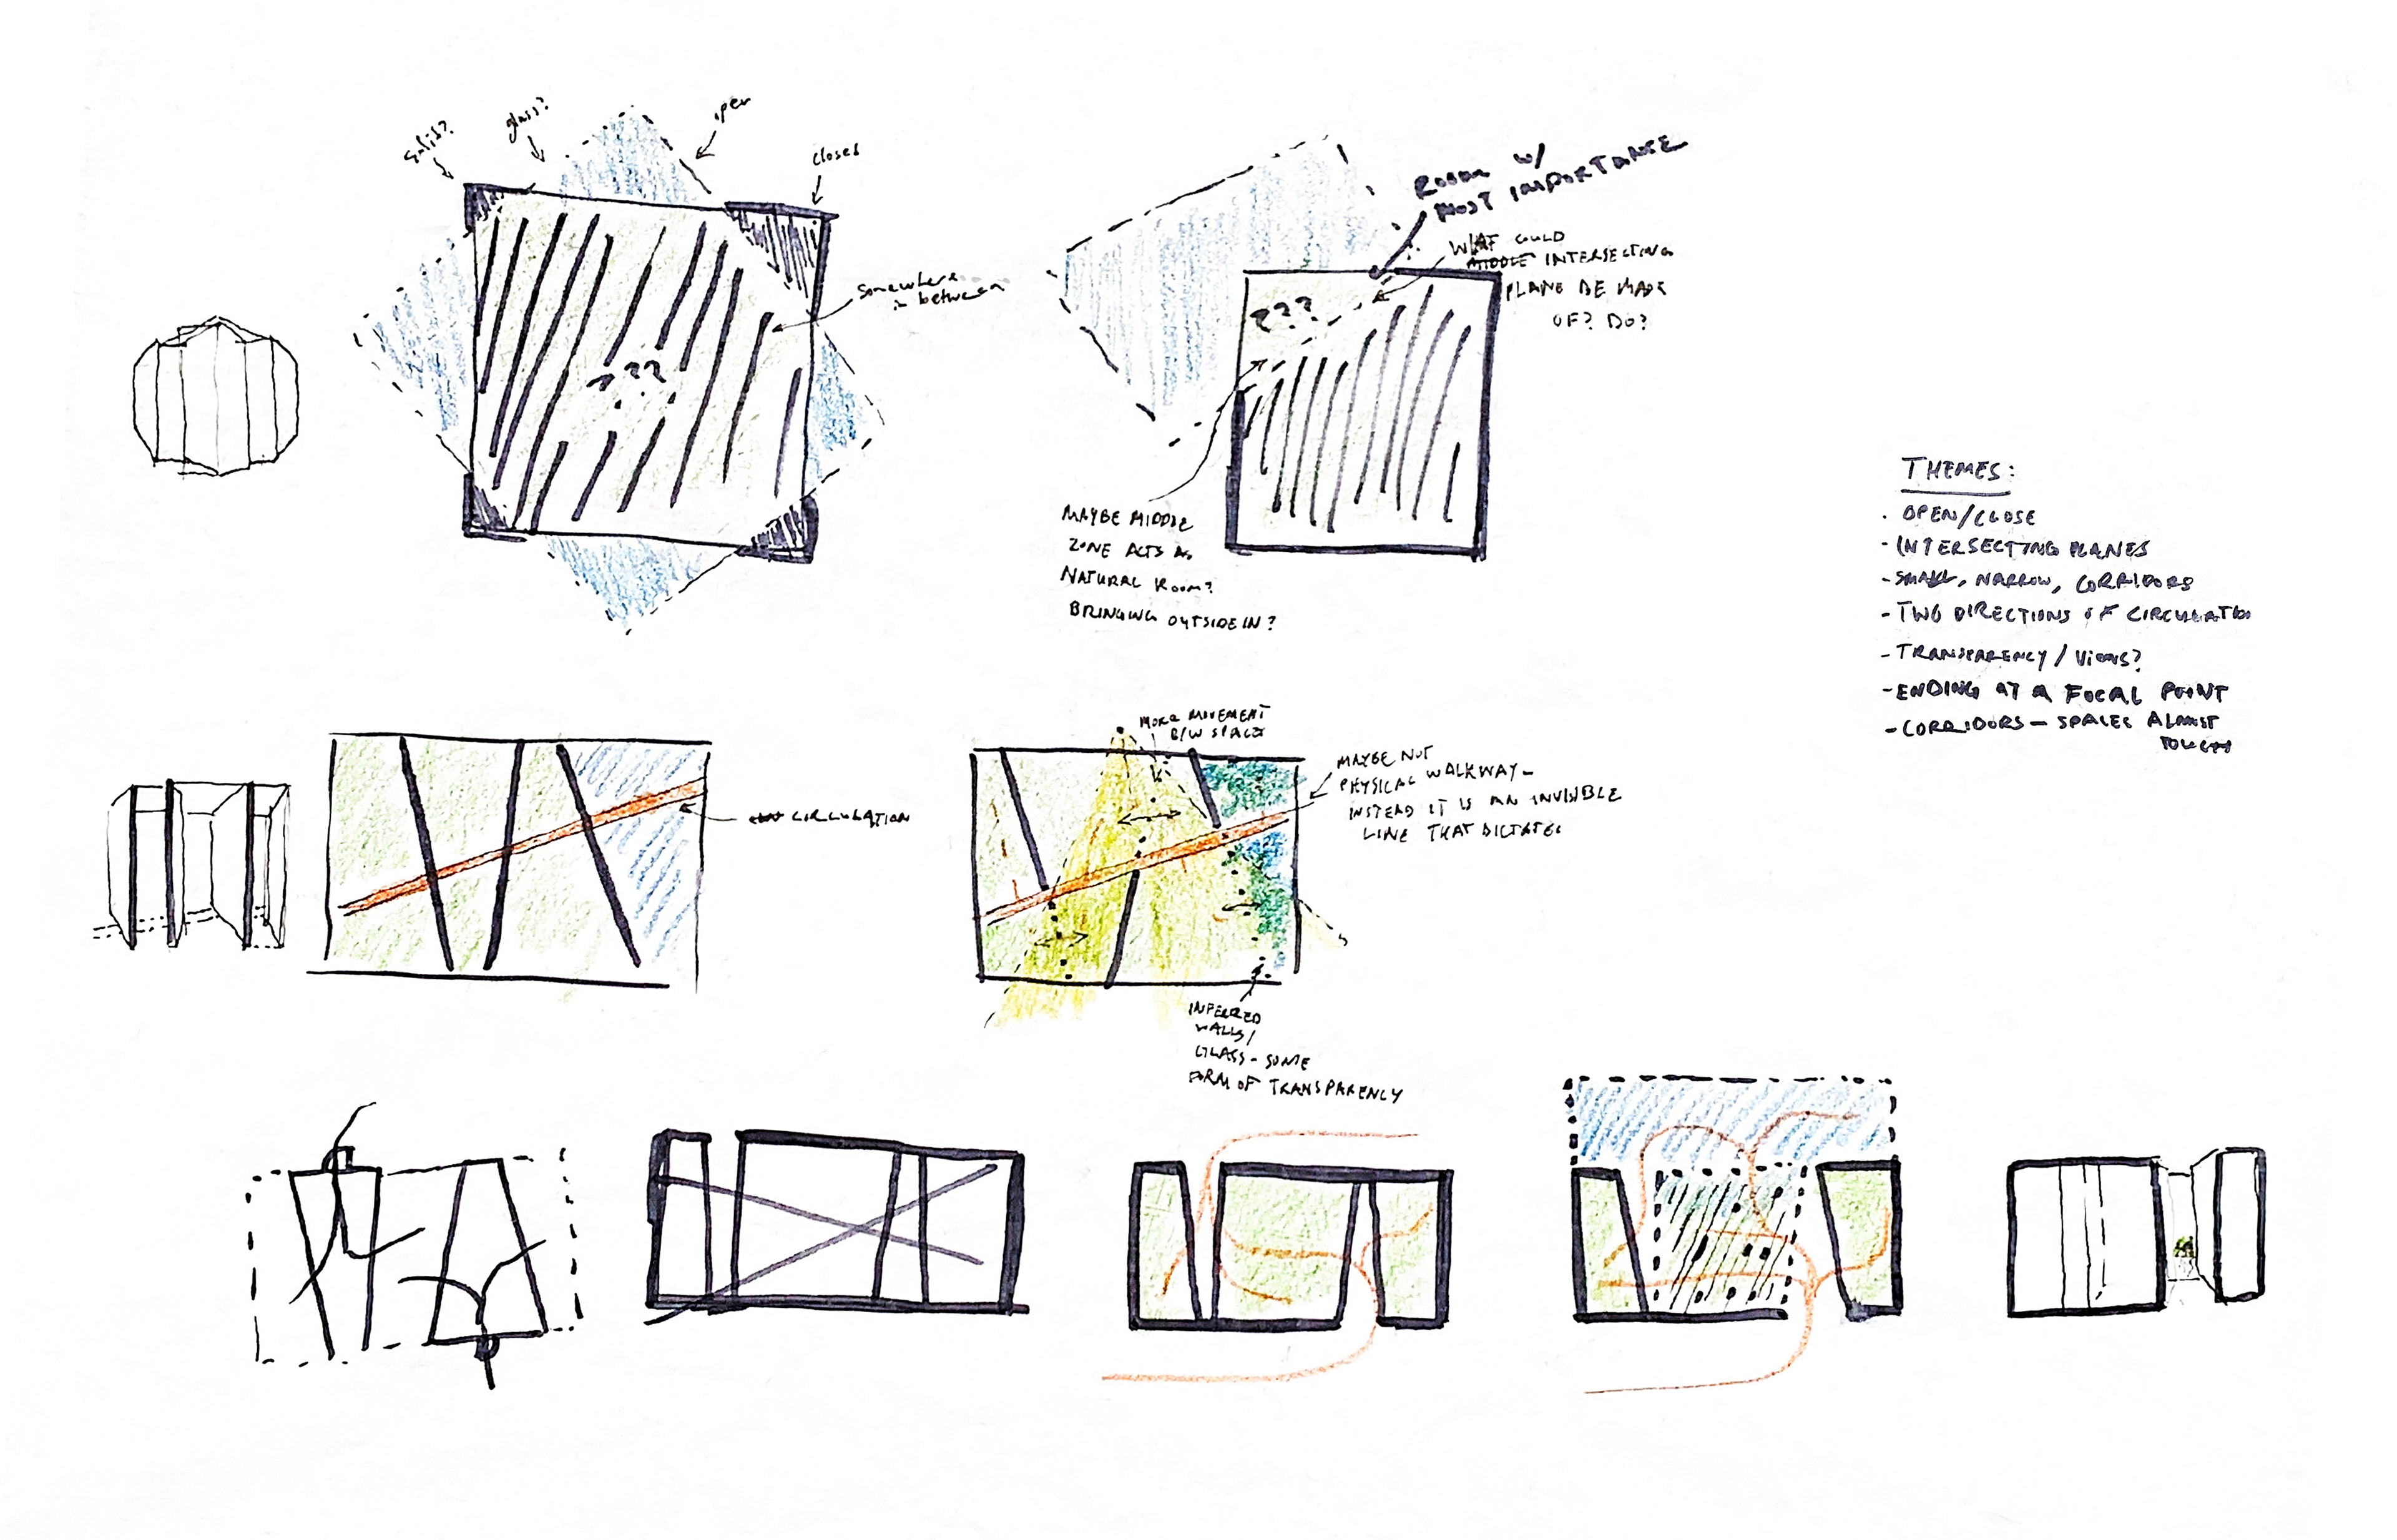 solid?
glass?
open
closed
somewhere
in between
???
ROOM W/
MOST IMPORTANCE
WHAT COULD
MIDDLE INTERSECTING
PLANE BE MADE
OF? DO?
???
MAYBE MIDDLE
ZONE ACTS AS
NATURAL ROOM?
BRINGING OUTSIDE IN?
THEMES:
. OPEN/CLOSE
- INTERSECTING PLANES
- SMALL, NARROW, CORRIDORS
- TWO DIRECTIONS OF CIRCULATION
- TRANSPARENCY / VIEWS?
- ENDING AT A FOCAL POINT
- CORRIDORS - SPACES ALMOST
TOUCH
CIRCULATION
MORE MOVEMENT
B/W SPACES
MAYBE NOT
PHYSICAL WALKWAY -
INSTEAD IT IS AN INVISIBLE
LINE THAT DICTATES
INFERRED
WALLS/
GLASS - SOME
FORM OF TRANSPARENCY